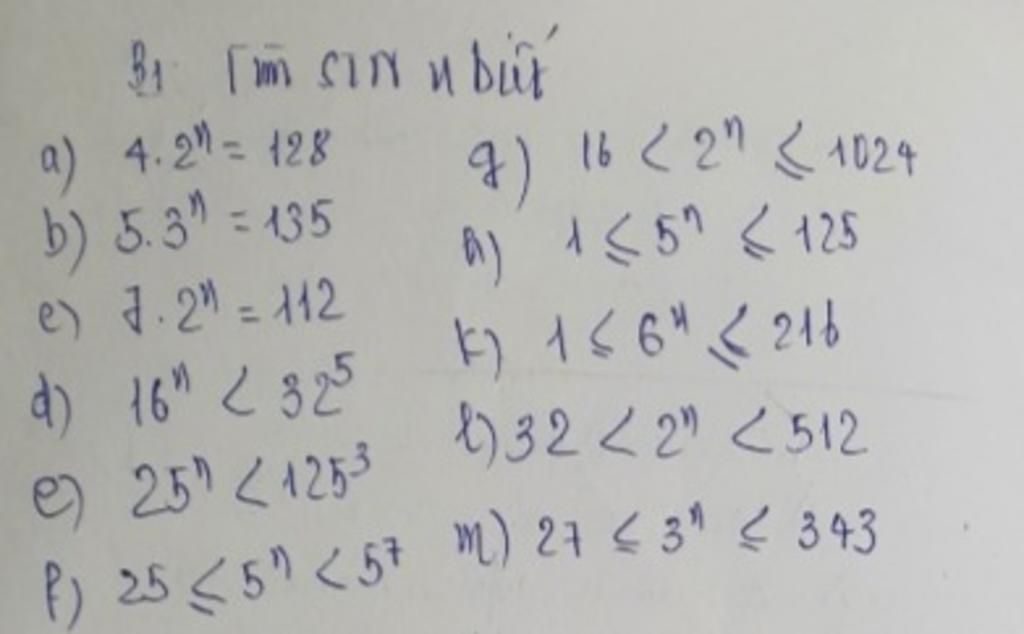 B1. Tìm STN n biết
a) 4.2ⁿ = 128
b) 5.3ⁿ = 135
c) 7.2ⁿ = 112
d) 16ⁿ < 32⁵
e) 25ⁿ < 125³
f) 25 ≤ 5ⁿ < 5⁷
g) 16 < 2ⁿ ≤ 1024
h) 1 ≤ 5ⁿ ≤ 125
k) 1 ≤ 6ⁿ ≤ 216
l) 32 < 2ⁿ < 512
m) 27 ≤ 3ⁿ ≤ 343